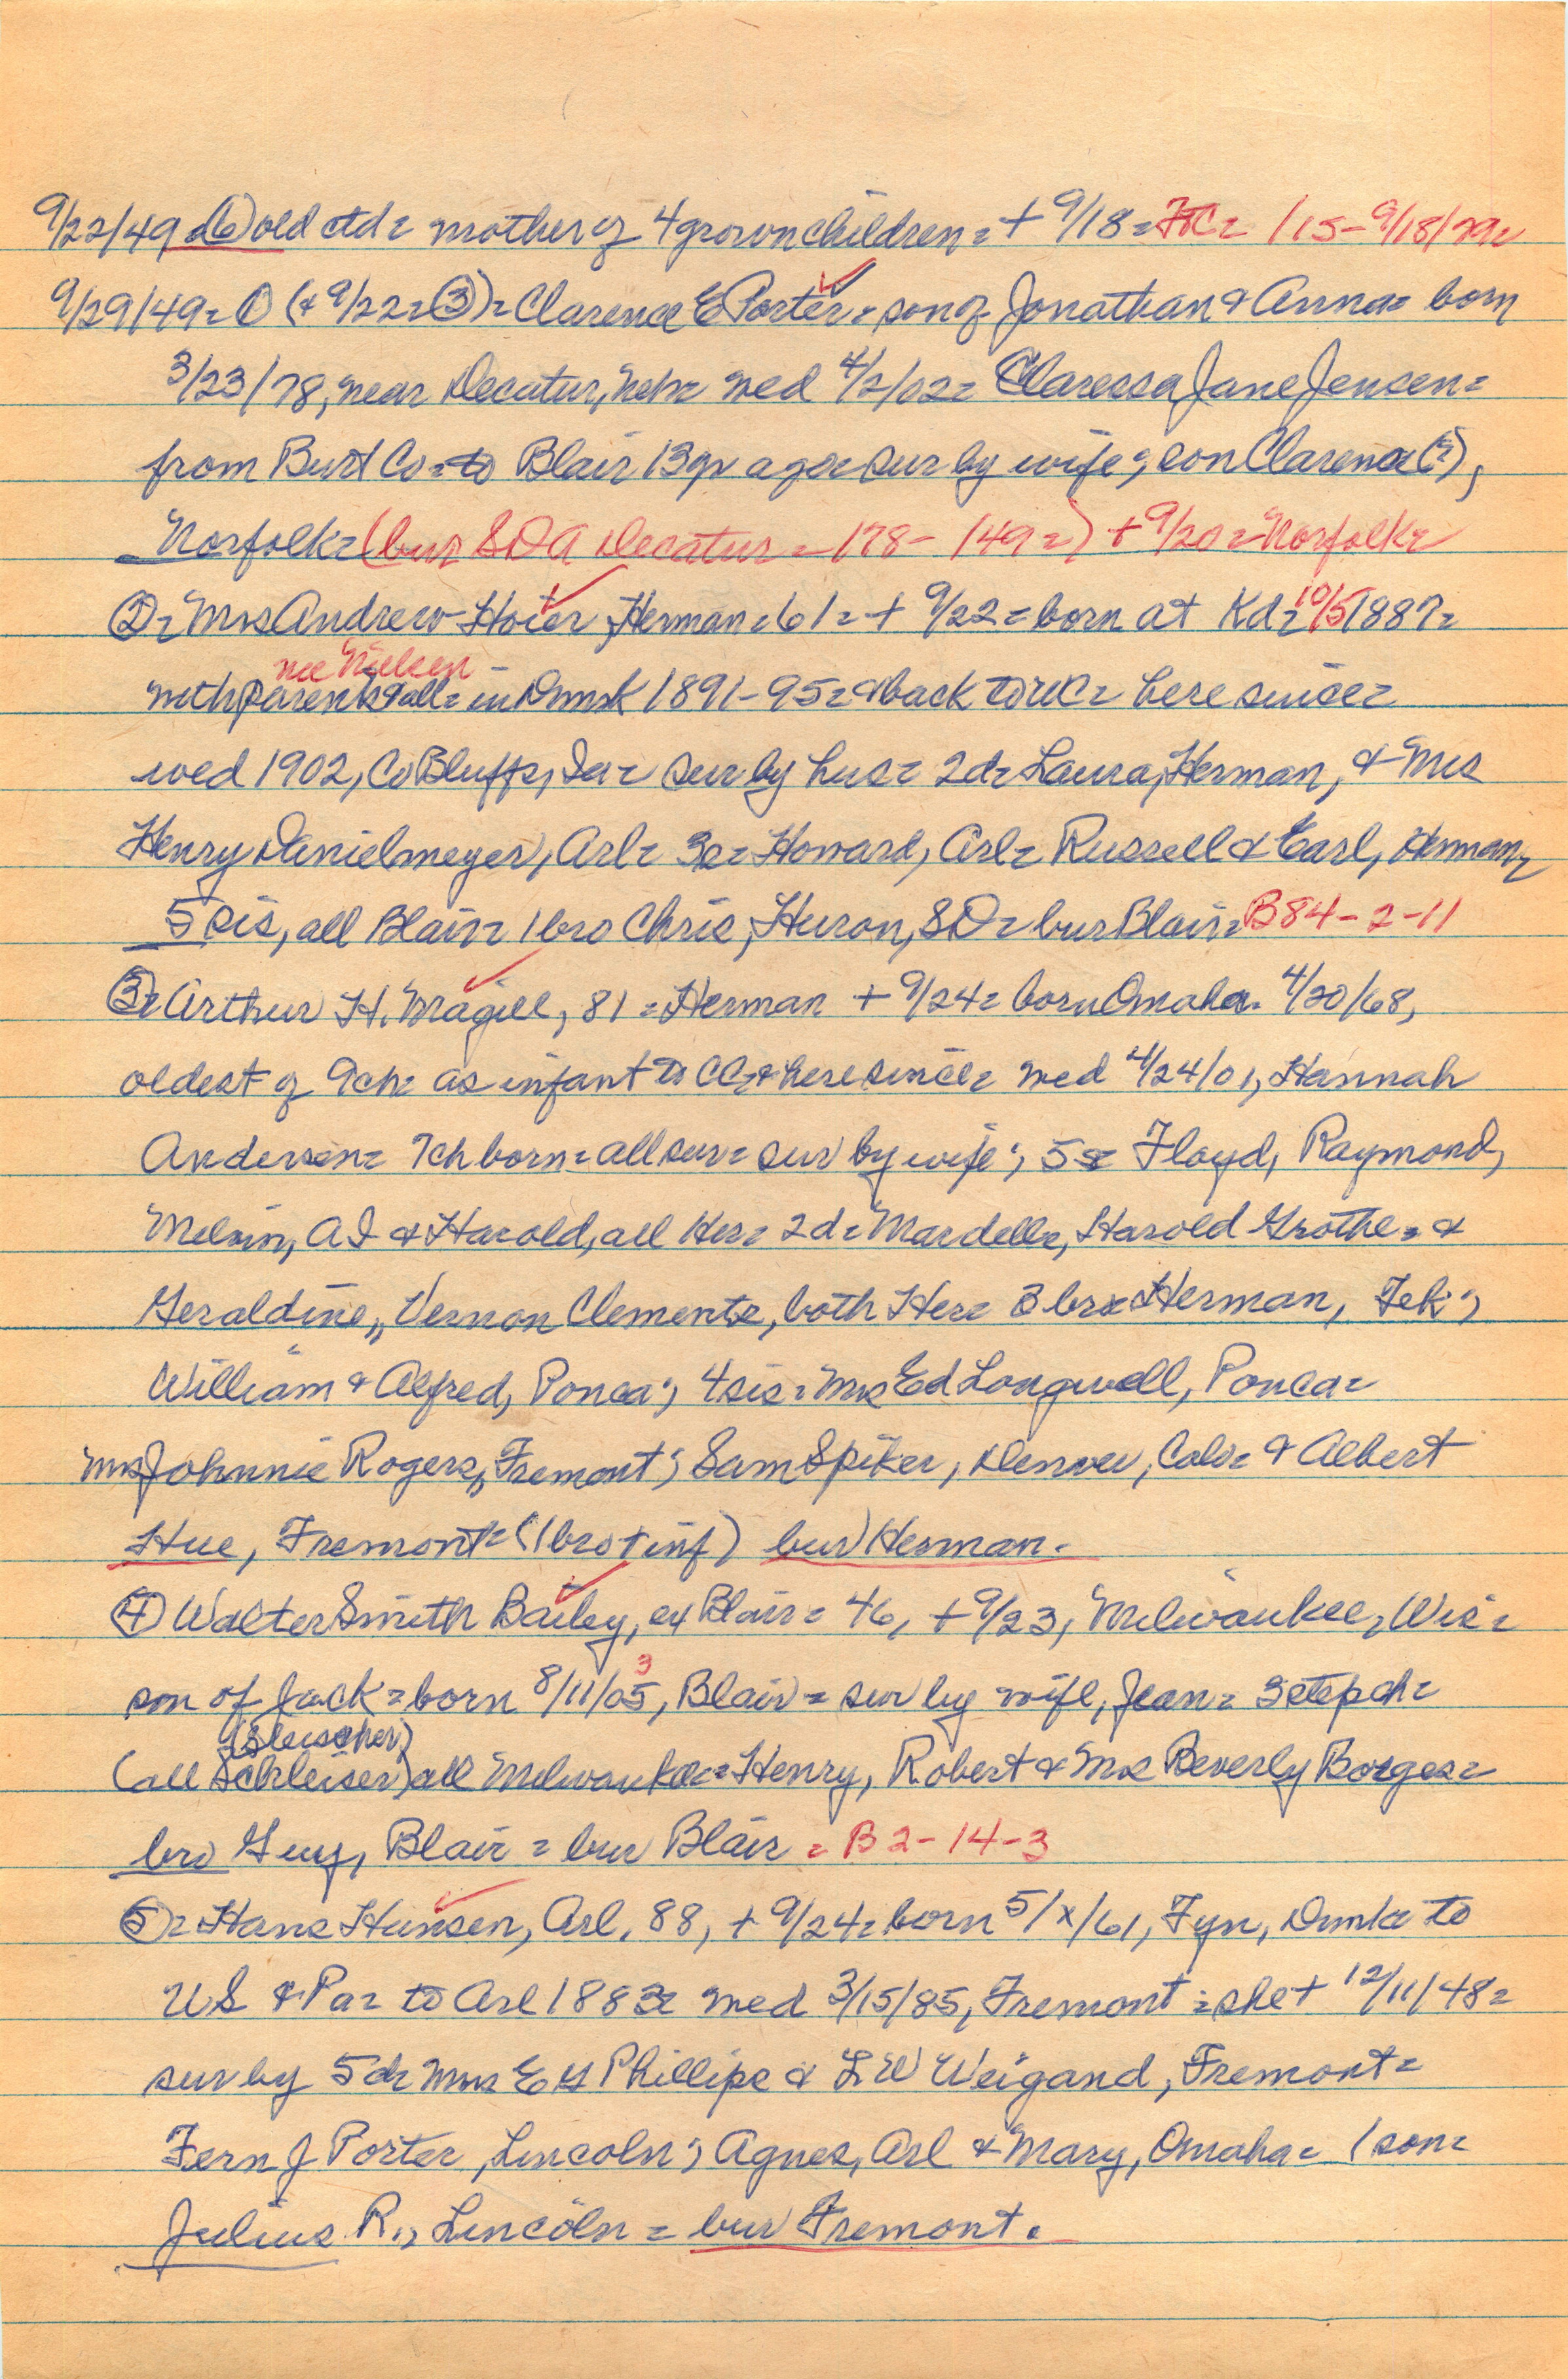 9/22/49 = (6) old std = mother of 4 grown children = + 9/18 = FC = /15 - 9/18/49 =
9/29/49 = (1) (& 9/22 = (3)) = Clarence E Porter = son of Jonathan & Anna = born
3/23/78, near Decatur, Neb = wed 4/2/02 = Claressa Jane Jensen =
from Burt Co = to Blair 13 yr ago = sur by wife; son Clarence (?),
Norfolk = (bur SDA Decatur = 178 - /49 =) + 9/20 = Norfolk =
(2) = Mrs Andrew Hoier, Herman = 61 = + 9/22 = born at Kd = 10/5 1887 =
nee Nielsen
with parents & all = in Dnmk 1891-95 = & back to WC = here since =
wed 1902, Co Bluffs, Ia = sur by hus = 2d = Laura, Herman, & Mrs
Henry Danielmeyer, Arl = 3s = Howard, Arl = Russell & Earl, Herman =
5 sis, all Blair = 1 bro Chris, Huron, SD = bur Blair = B84-2-11
(3) = Arthur H. Magill, 81 = Herman + 9/24 = born Omaha = 4/20/68,
oldest of 9ch = as infant to CC = & here since = wed 4/24/01, Hannah
Andersen = 7ch born = all sur = sur by wife; 5s = Floyd, Raymond,
Melvin, AI & Harold, all Her = 2d = Mardelle, Harold Grothe = &
Geraldine, Vernon Clements, both Her = 3 br = Herman, Tek;
William & Alfred, Ponca; 4 sis = Mrs Ed Longwell, Ponca =
Mrs Johnnie Rogers, Fremont; Sam Spiker, Denver, Colo = & Albert
Hue, Fremont = (1 bro + inf) bur Herman.
(4) Walter Smith Bailey, ex Blair = 46, + 9/23, Milwaukee, Wis =
son of Jack = born 8/11/05 3, Blair = sur by wife, Jean = 3 stepch =
(Sleischer)
(all Schleiser) all Milwaukee = Henry, Robert & Mrs Beverly Borges =
bro Guy, Blair = bur Blair = B2-14-3
(5) = Hans Hansen, Arl, 88, + 9/24 = born 5/x/61, Fyn, Dnmk = to
US & Pa = to Arl 1883 = wed 3/15/85, Fremont = she + 12/11/48 =
sur by 5d = Mrs E H Phillips & L W Weigand, Fremont =
Fern J Porter, Lincoln; Agnes, Arl & Mary, Omaha = 1 son =
Julius R., Lincoln = bur Fremont.